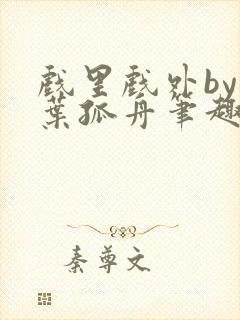 戏里戏外by
葉孤舟筆趣
秦尊文